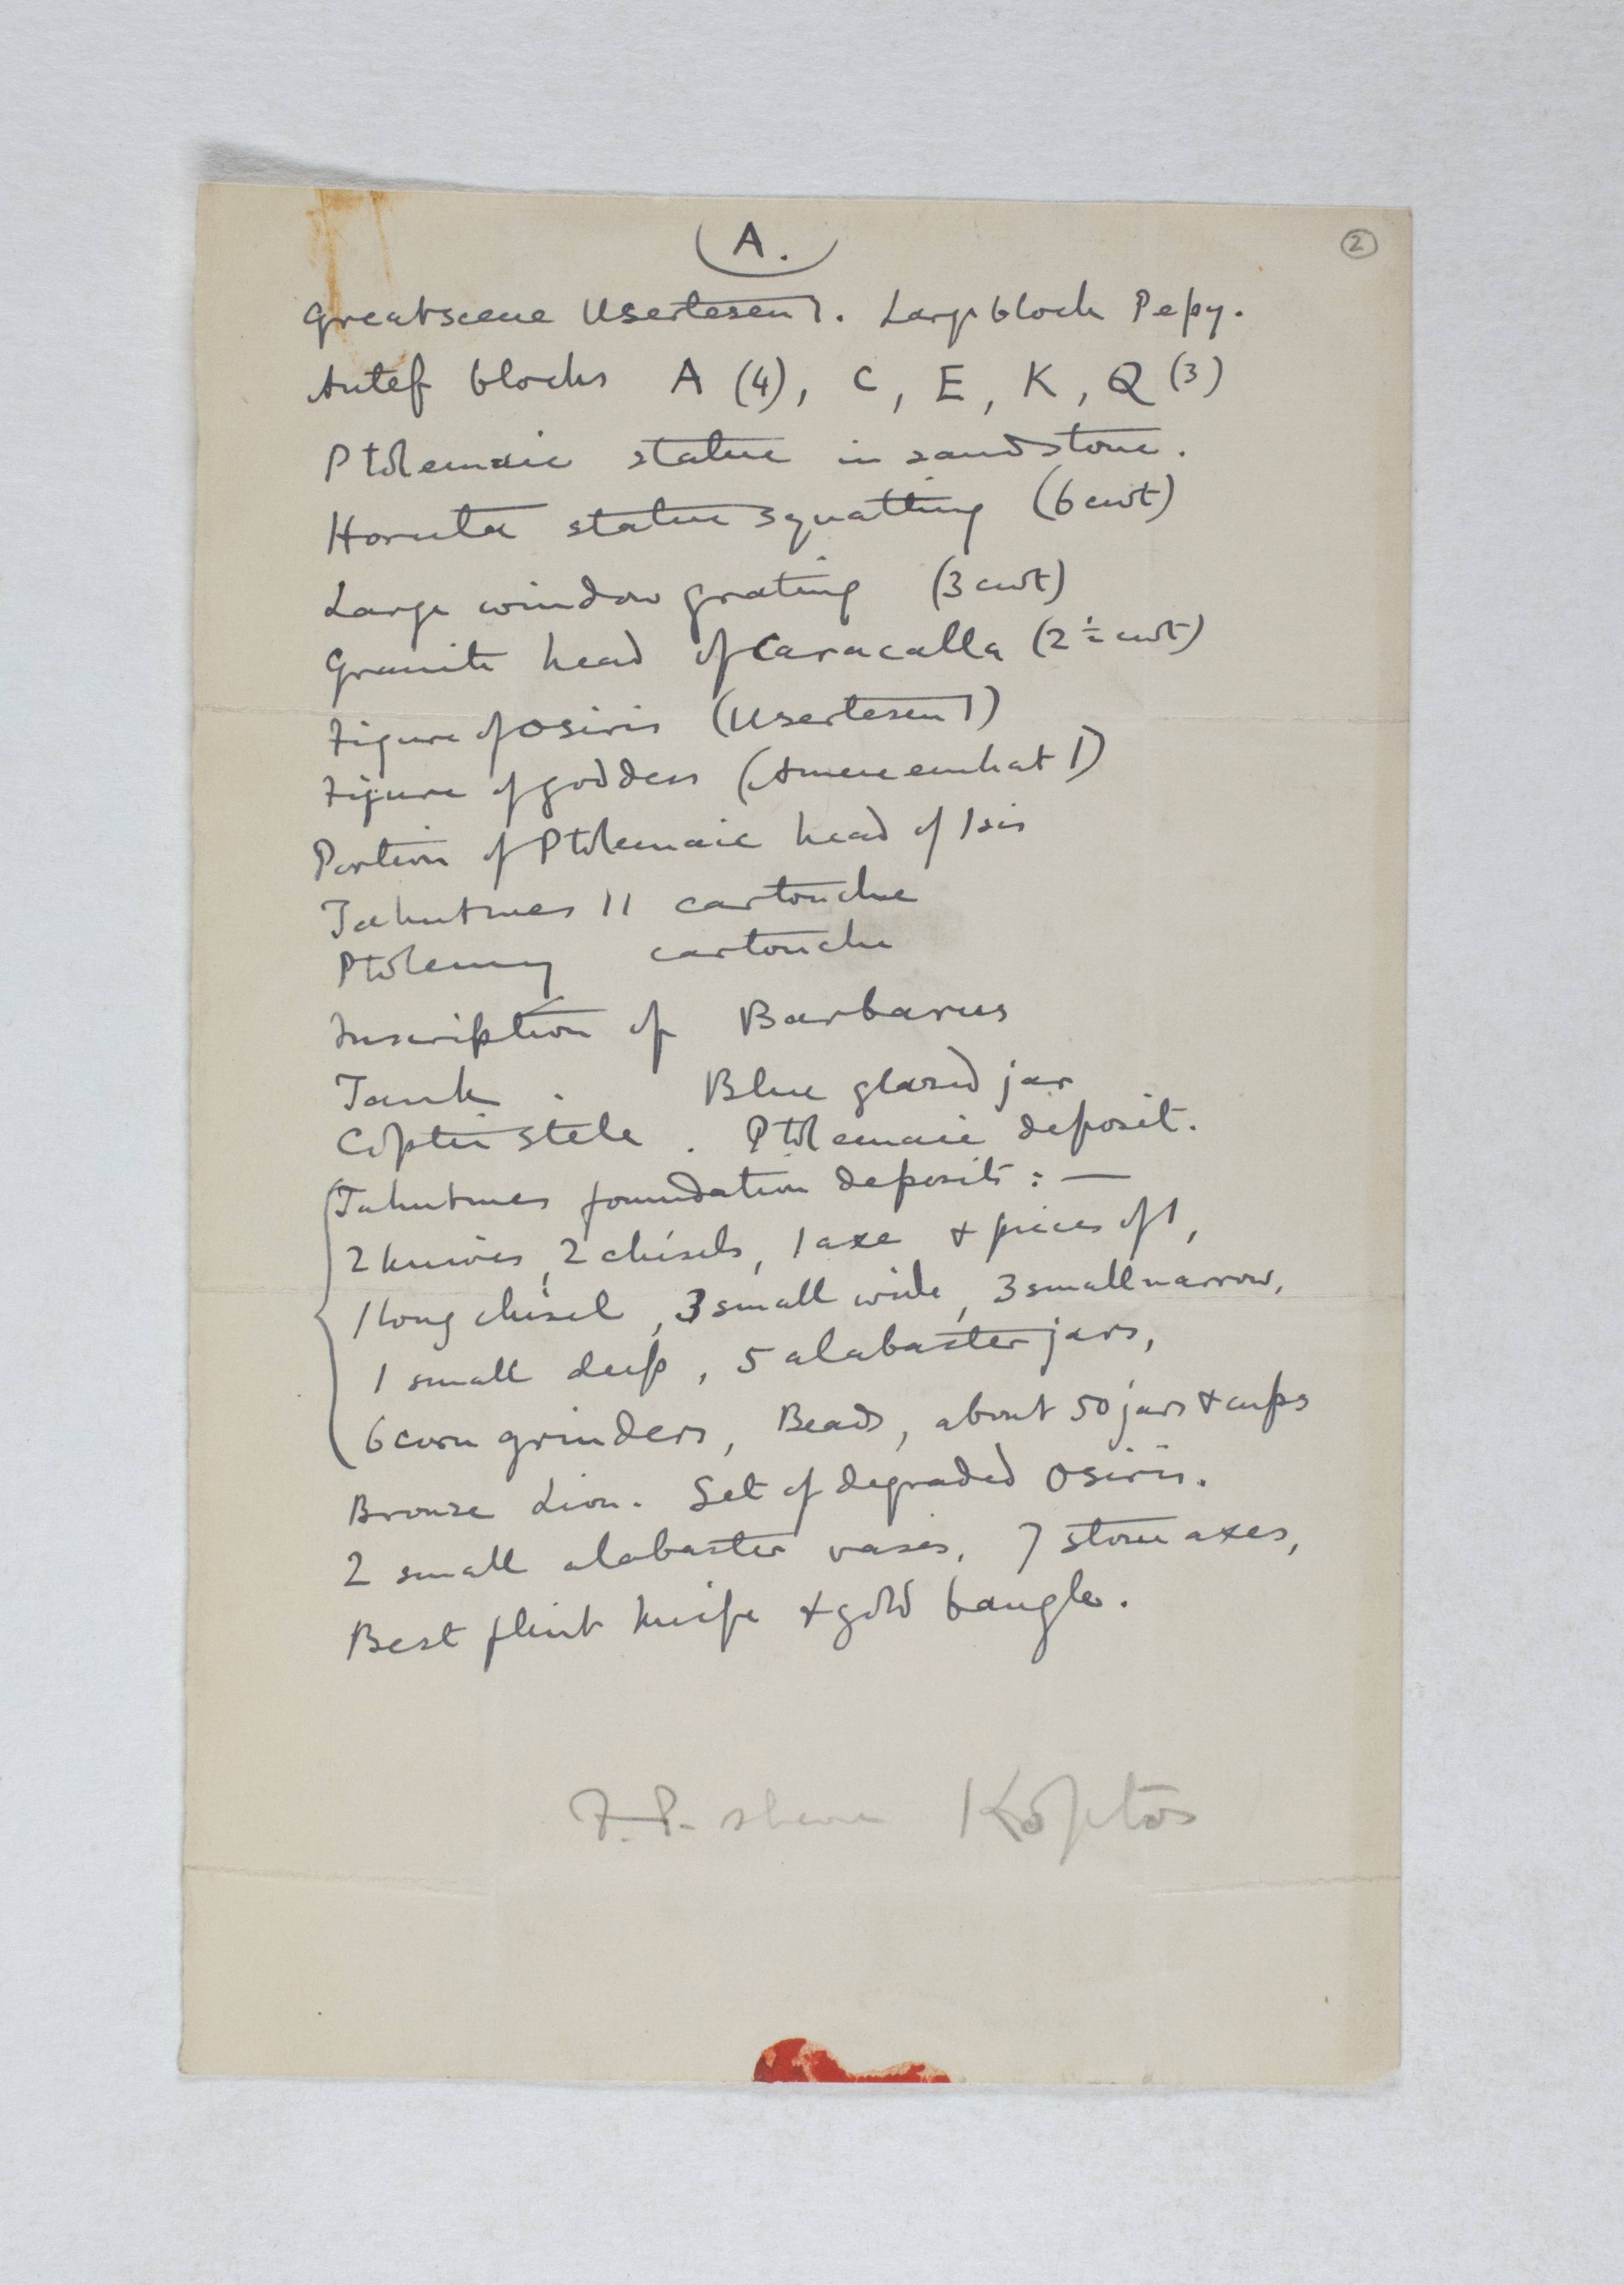 A.
2
Great scene Usertesen I. Large block Pepy.
Antef blocks A (4), C, E, K, Q (3)
Ptolemaic statue in sandstone.
Horuta statue squatting (6 cwt)
Large window grating (3 cwt)
Granite head of Caracalla (2½ cwt)
Figure of Osiris (Usertesen I)
Figure of goddess (Amenemhat I)
Portion of Ptolemaic head of Isis
Tahutmes II cartouche
Ptolemy cartouche
Inscription of Barbarus
Tank. Blue glazed jar
Coptic stele. Ptolemaic deposit.
Tahutmes foundation deposits:—
2 knives, 2 chisels, 1 axe & pieces of 1,
1 long chisel, 3 small wide, 3 small narrow,
1 small deep, 5 alabaster jars,
6 corn grinders, Beads, about 50 jars & cups
Bronze Lion. Set of degraded Osiris.
2 small alabaster vases, 7 stone axes,
Best flint knife & gold bangle.
F.P. share Koptos